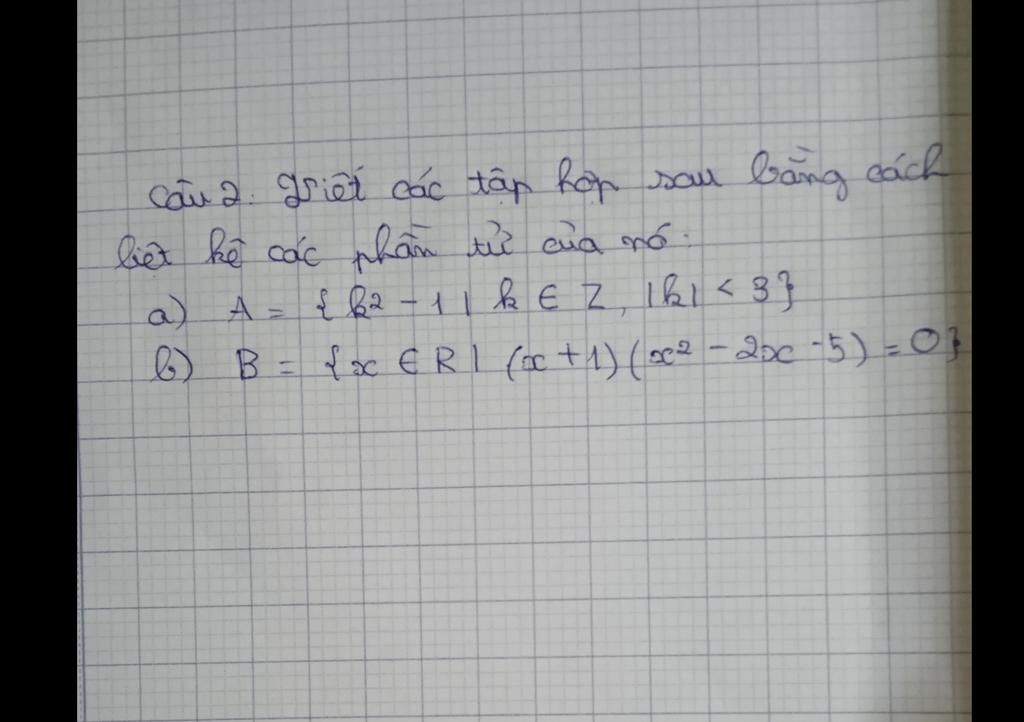 Câu 2. Viết các tập hợp sau bằng cách
liệt kê các phần tử của nó:
a) A = {k² - 1 | k ∈ Z, |k| < 3}
b) B = {x ∈ R | (x + 1)(x² - 2x - 5) = 0}